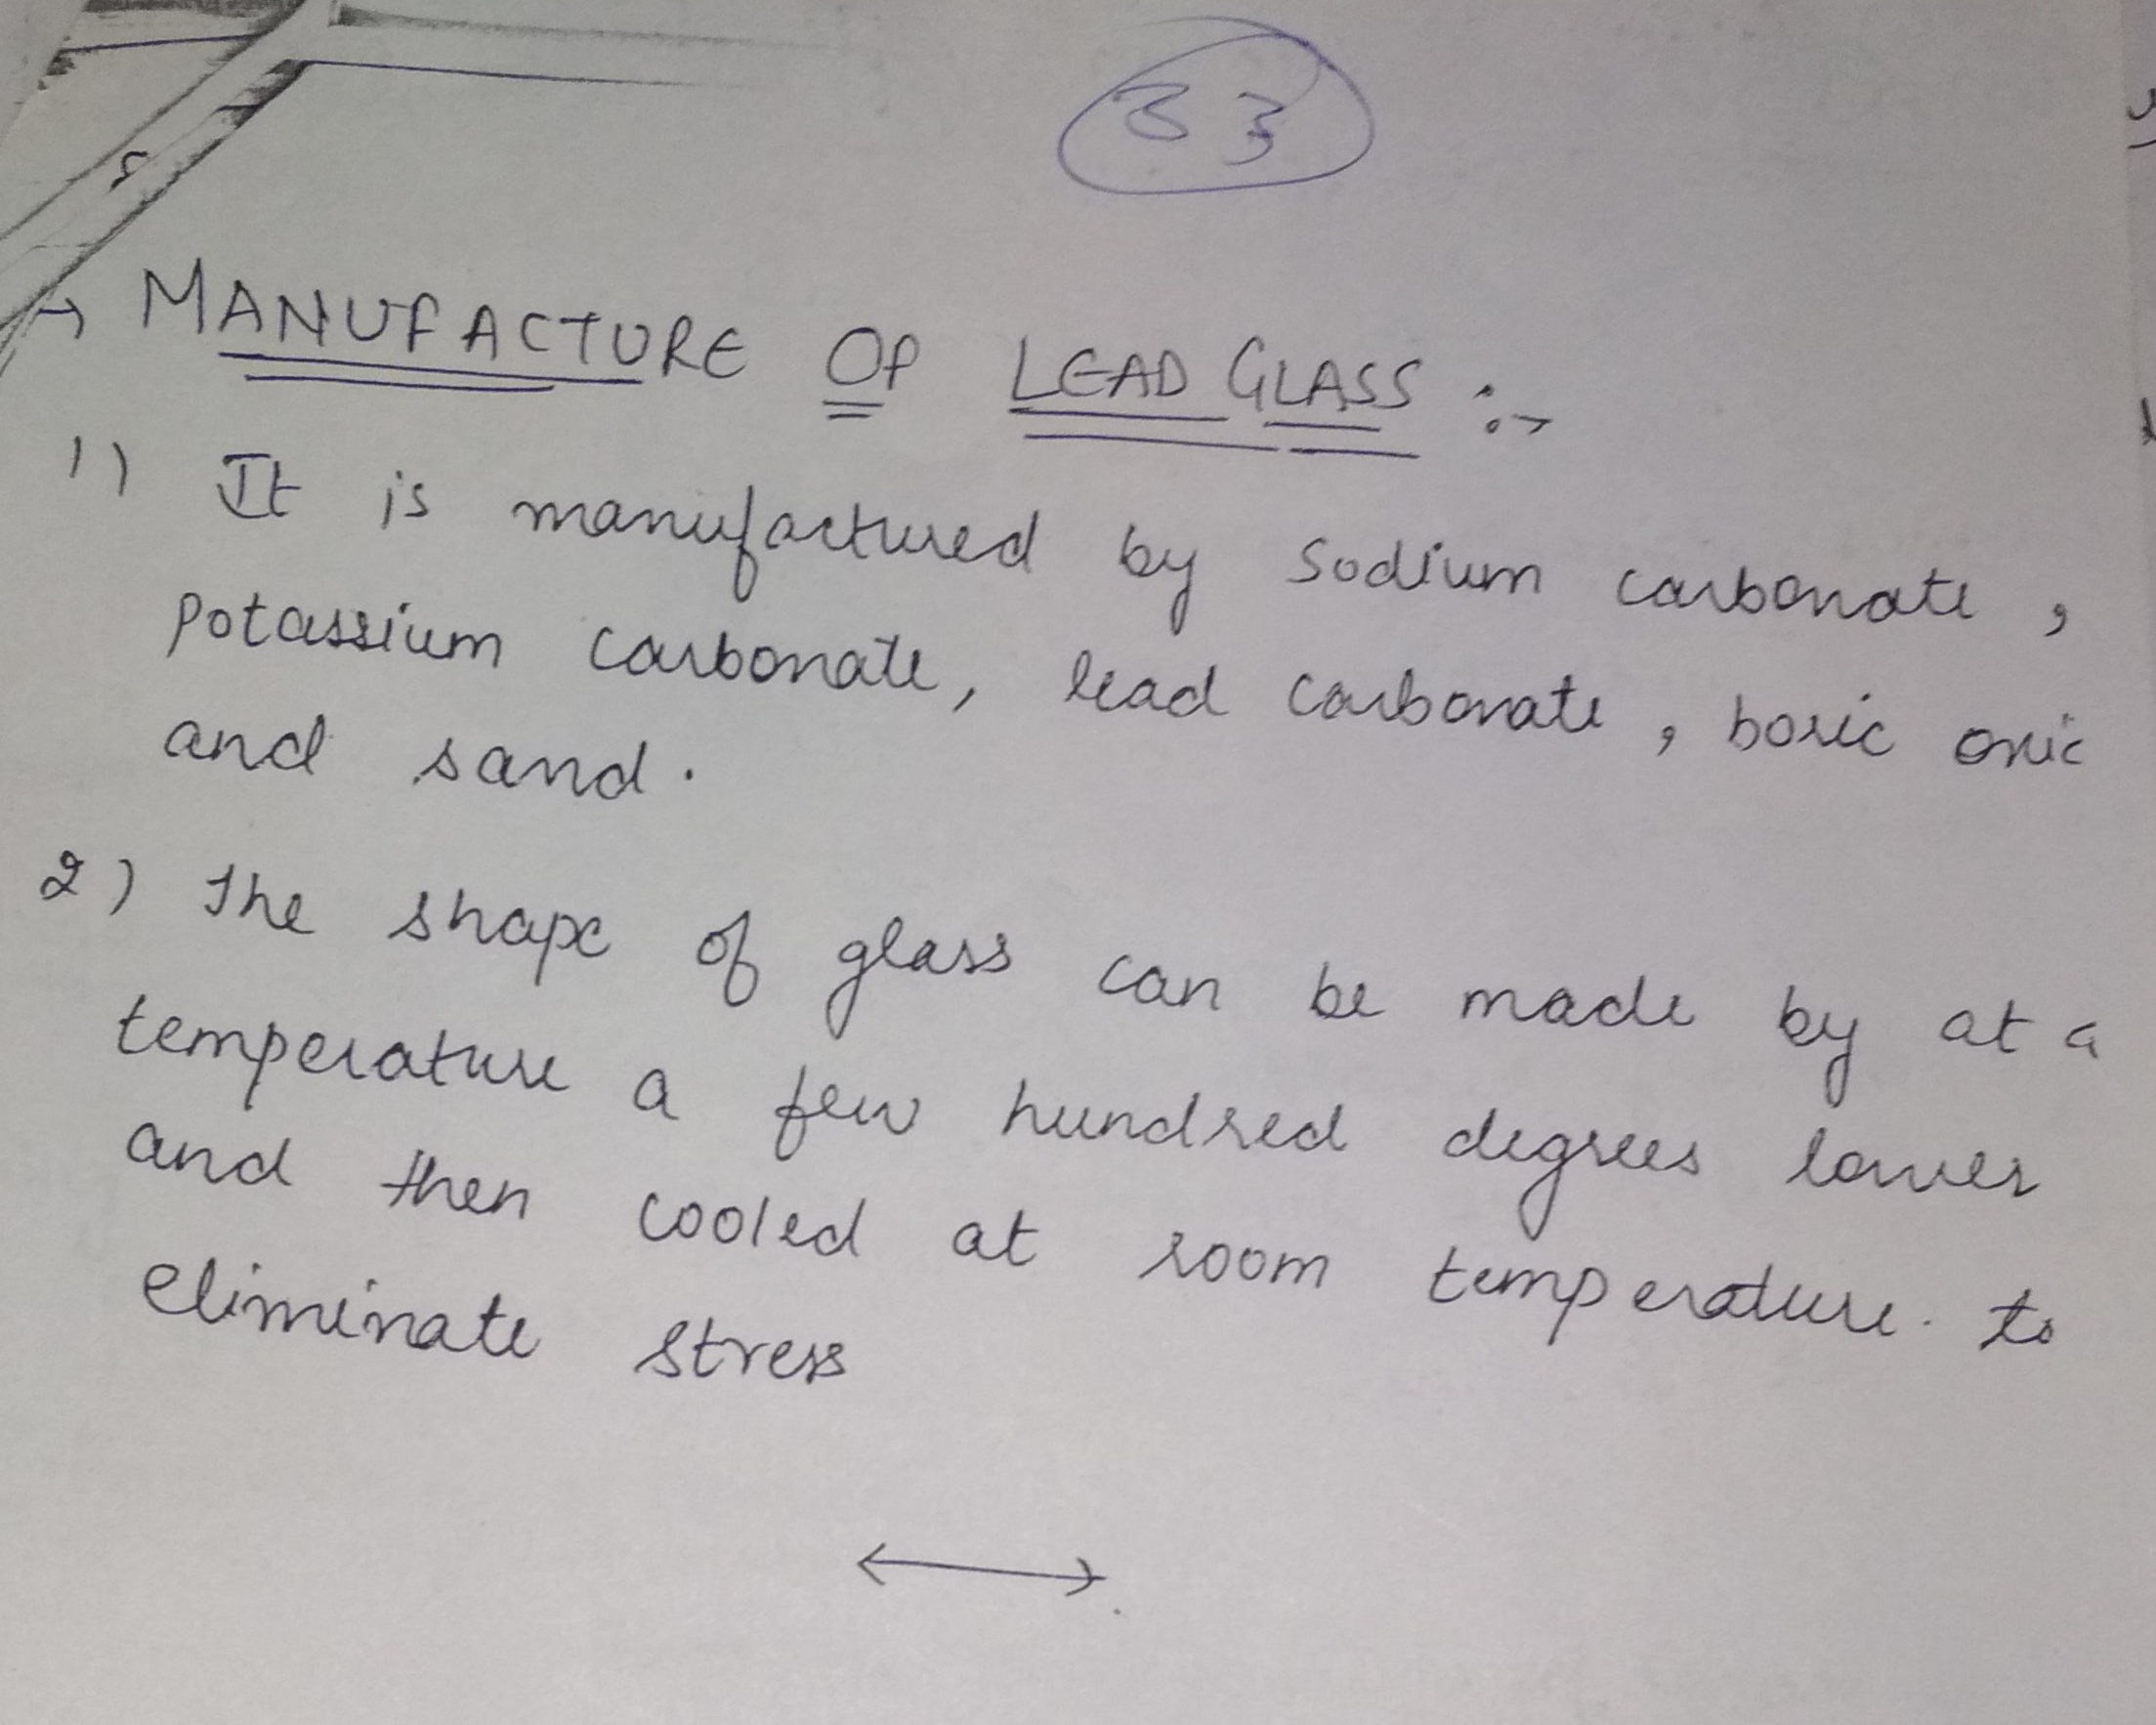 33
→ MANUFACTURE OF LEAD GLASS :-
1) It is manufactured by Sodium carbonate ,
potassium carbonate, lead carbonate , boric oxic
and sand.
2) The shape of glass can be made by at a
temperature a few hundred degrees lower
and then cooled at room temperature. to
eliminate stress